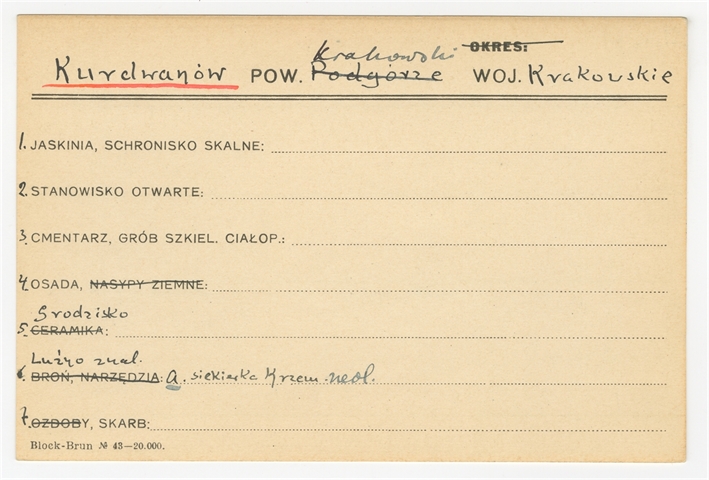 Krakowski OKRES:
Kurdwanów POW. Podgórze WOJ. Krakowskie
1. JASKINIA, SCHRONISKO SKALNE:
2. STANOWISKO OTWARTE:
3. CMENTARZ, GRÓB SZKIEL. CIAŁOP.:
4. OSADA, NASYPY ZIEMNE:
Grodzisko
5. CERAMIKA:
Luźno znal.
6. BROŃ, NARZĘDZIA: a. siekierka krzem. neol.
7. OZDOBY, SKARB:
Block-Brun № 43—20.000.